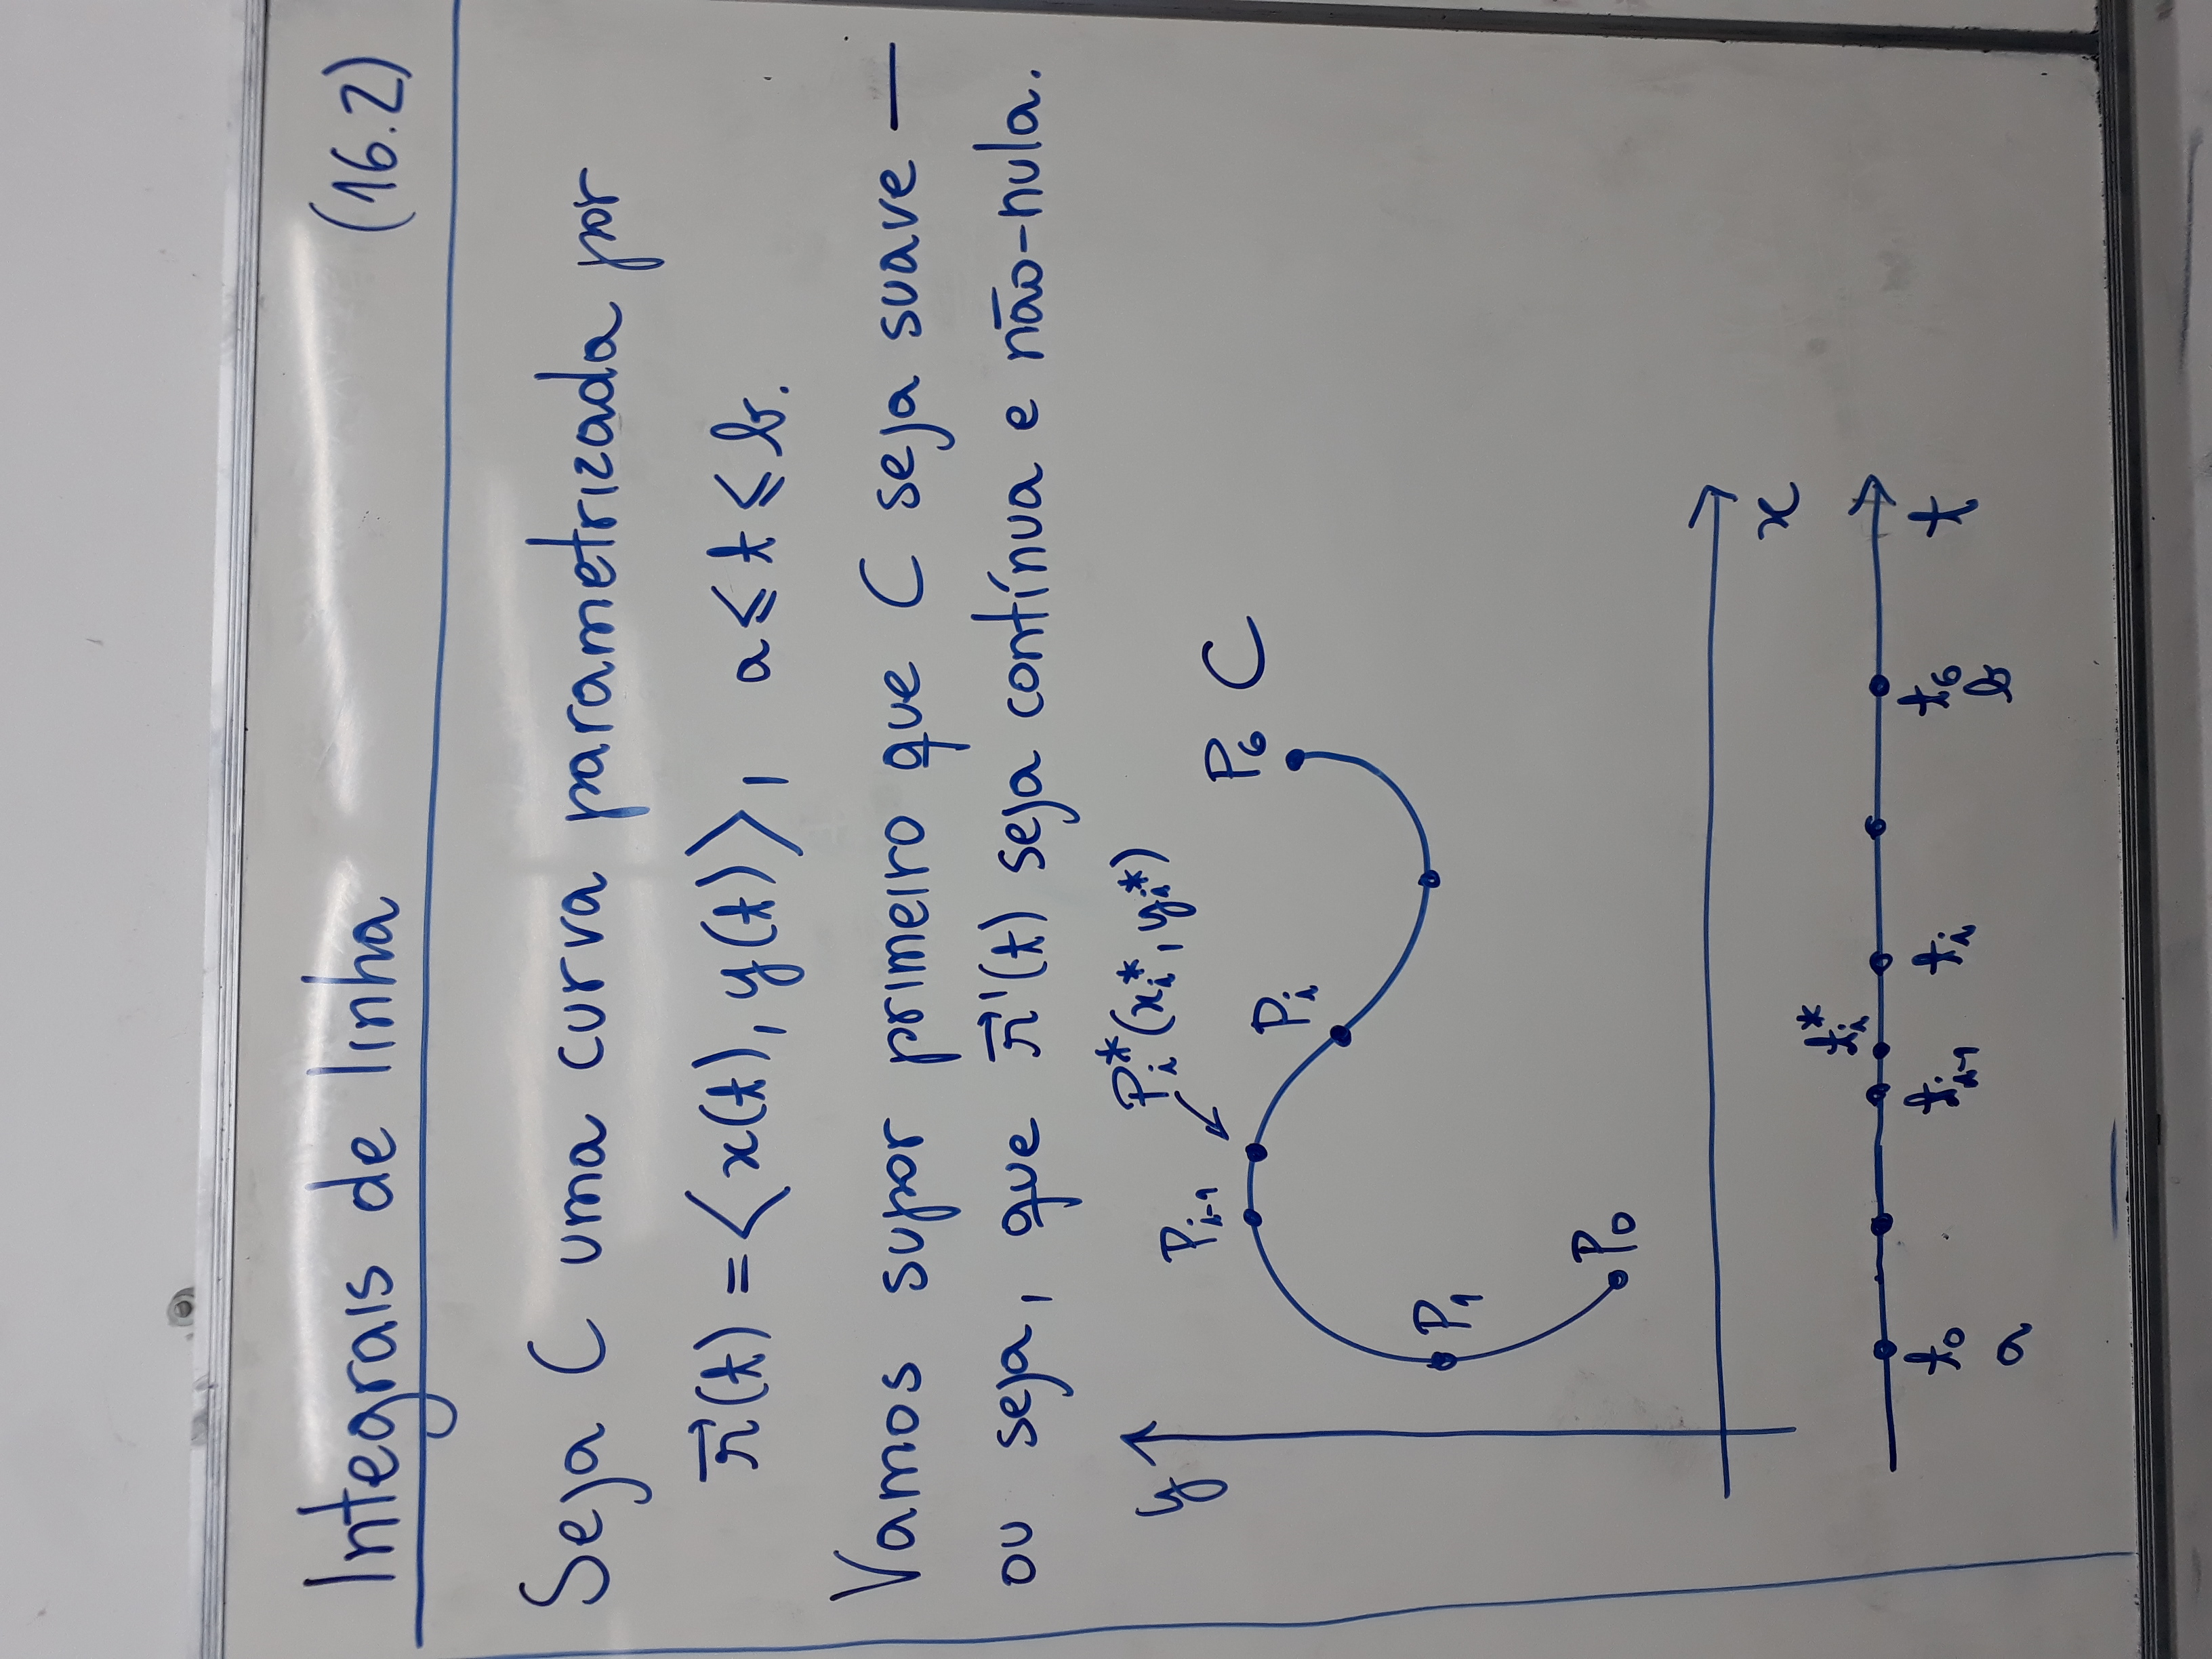 Integrais de linha (16.2)
Seja C uma curva parametrizada por
r⃗(t) = ⟨x(t), y(t)⟩, a ⩽ t ⩽ b.
Vamos supor primeiro que C seja suave —
ou seja, que r⃗'(t) seja contínua e não-nula.
y
Pᵢ*(xᵢ*, yᵢ*)
Pᵢ₋₁
P₆ C
Pᵢ
P₁
P₀
x
tᵢ*
t₀ tᵢ₋₁ tᵢ t₆ t
a b